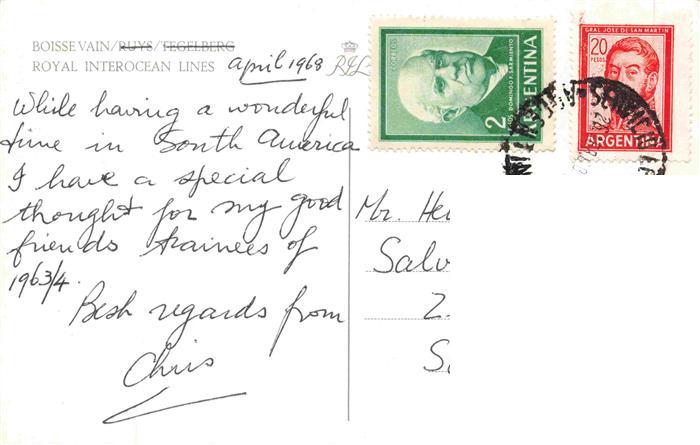 BOISSEVAIN/RUYS/TEGELBERG
ROYAL INTEROCEAN LINES
april 1968
While having a wonderful
time in South America
I have a special
thought for my good
friends trainees of
1963/4.
Best regards from
Chris
CORREOS
DOMINGO F. SARMIENTO
2
ARGENTINA
GRAL JOSE DE SAN MARTIN
20
PESOS
ARGENTINA
Mr. He
Salv
Z.
S